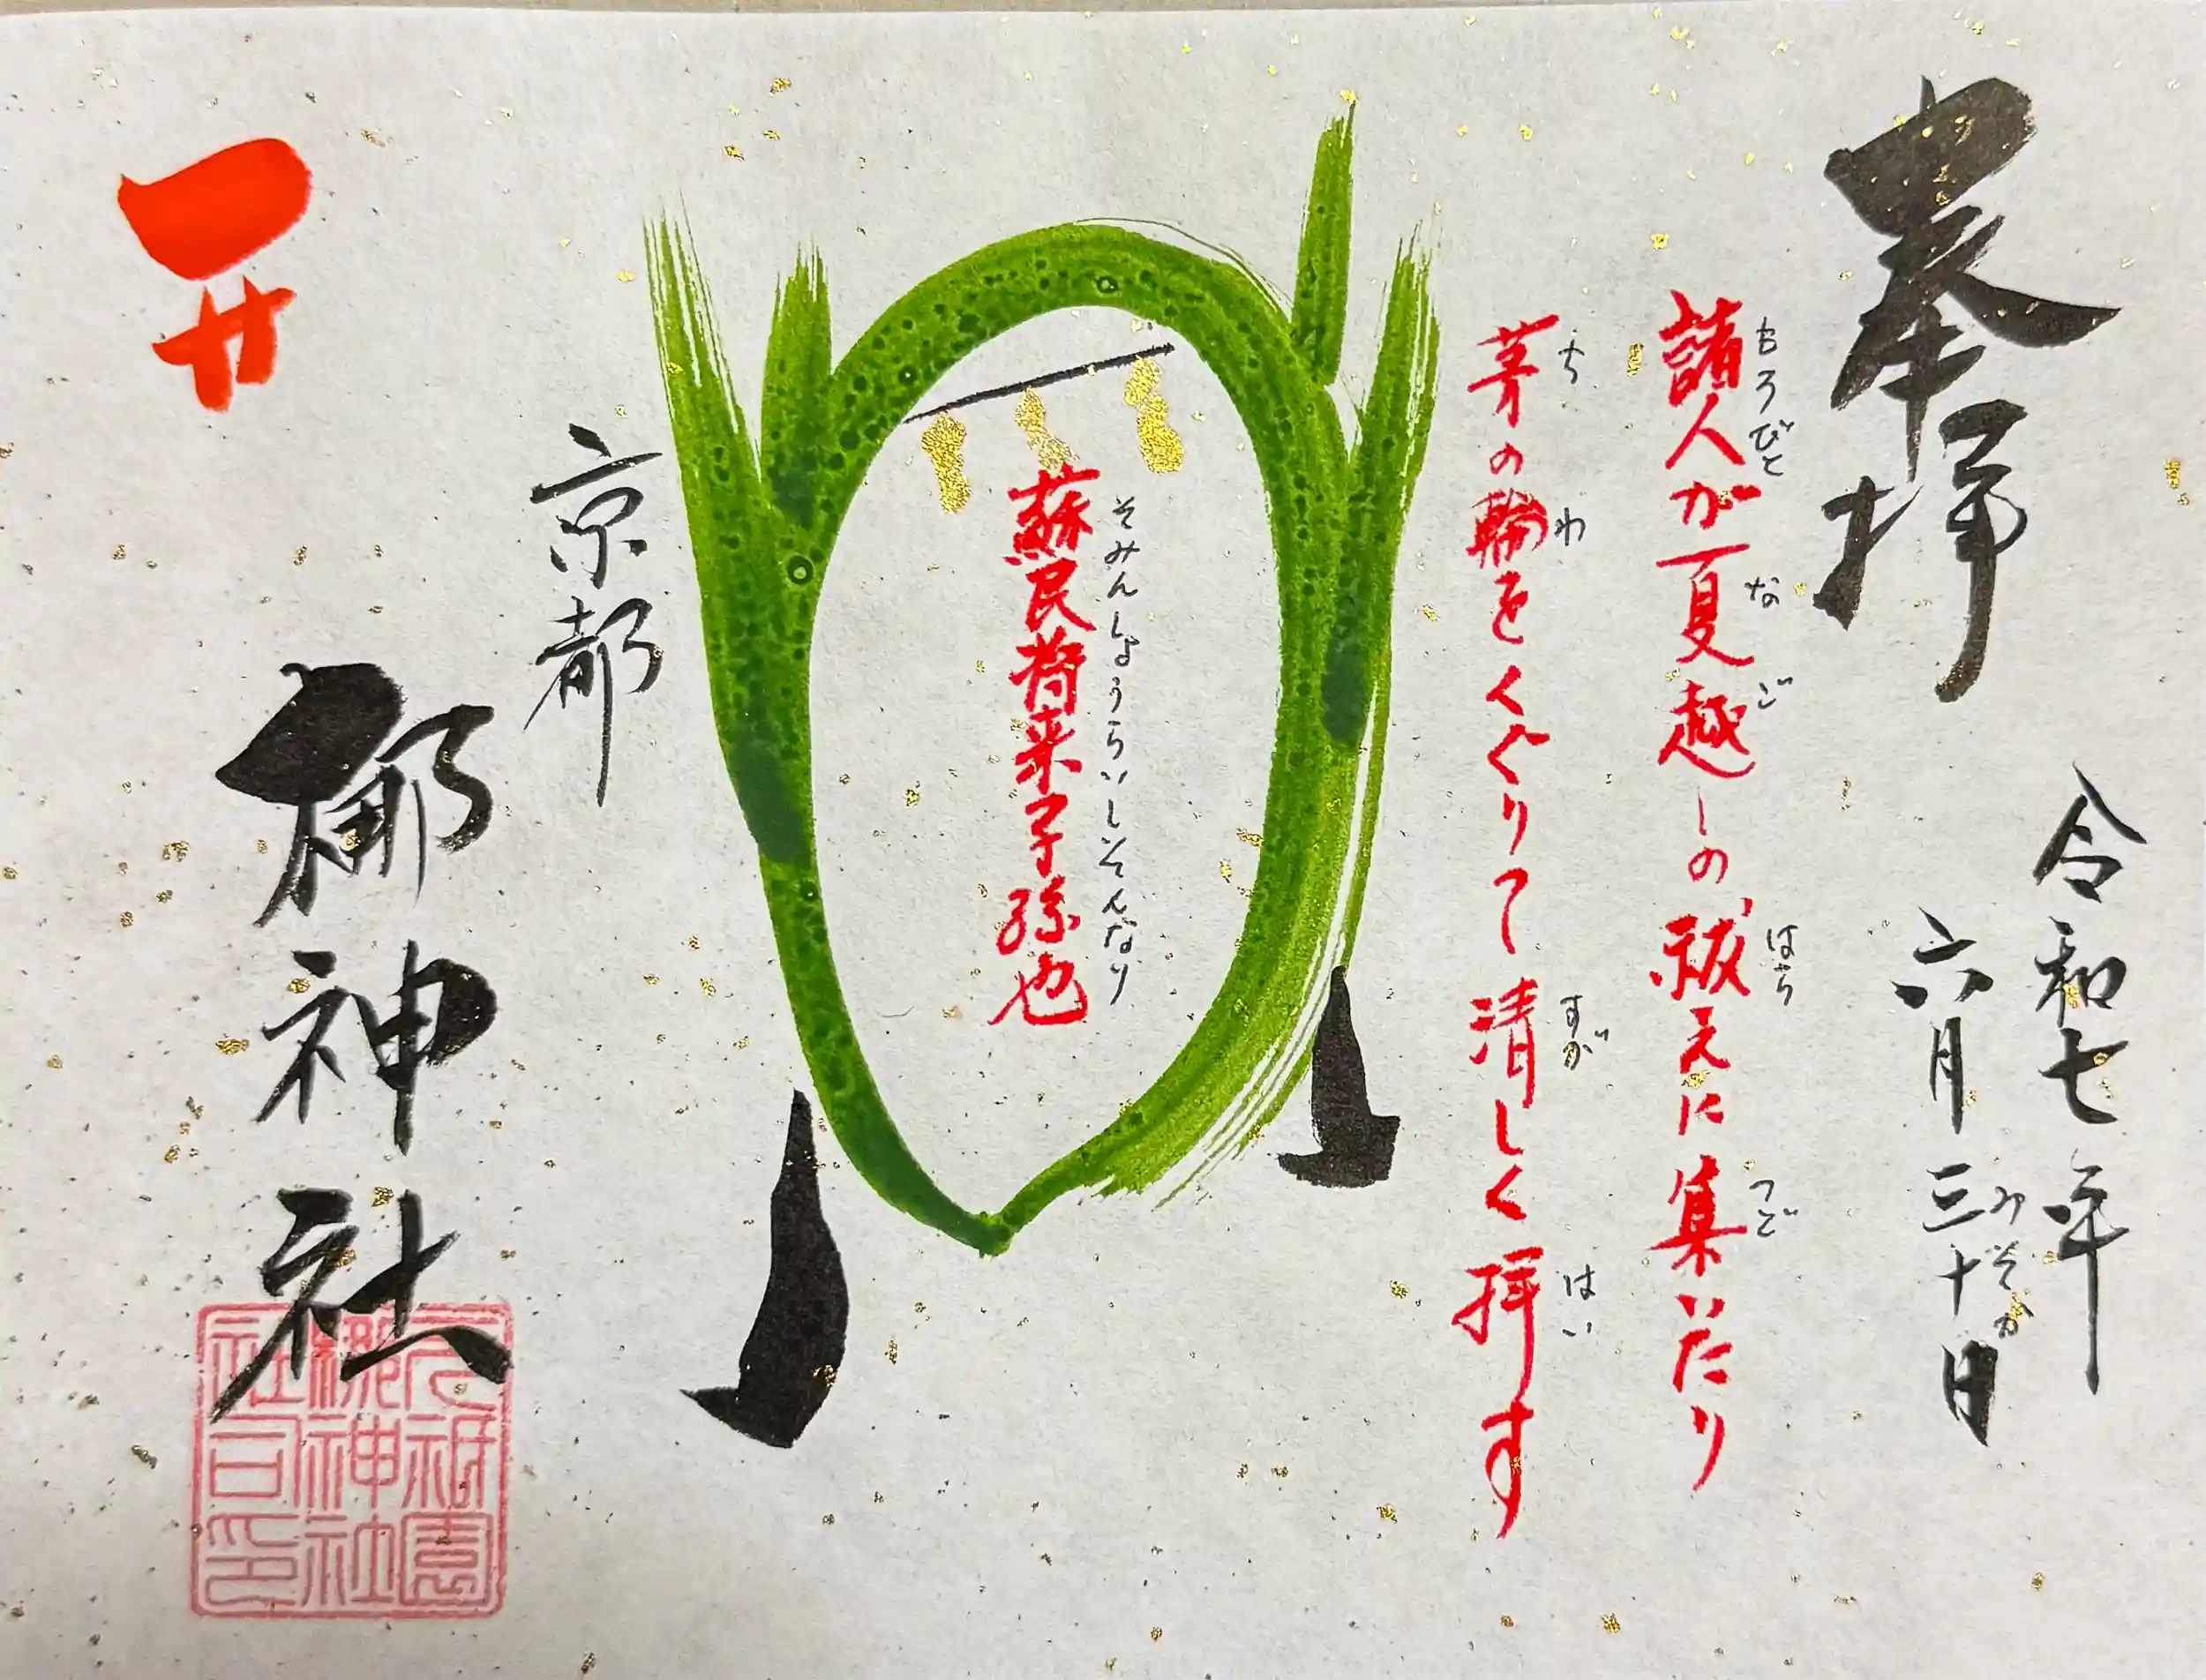 奉拝
令和七年
六月三十日
みそか
諸人が夏越しの祓えに集いたり
もろびと な ごし はら つど
茅の輪をくぐりて清しく拝す
ち わ すが はい
蘇民将来子孫也
そみんしょうらいしそんなり
京都
梛神社
元祇園
梛神社
社司印